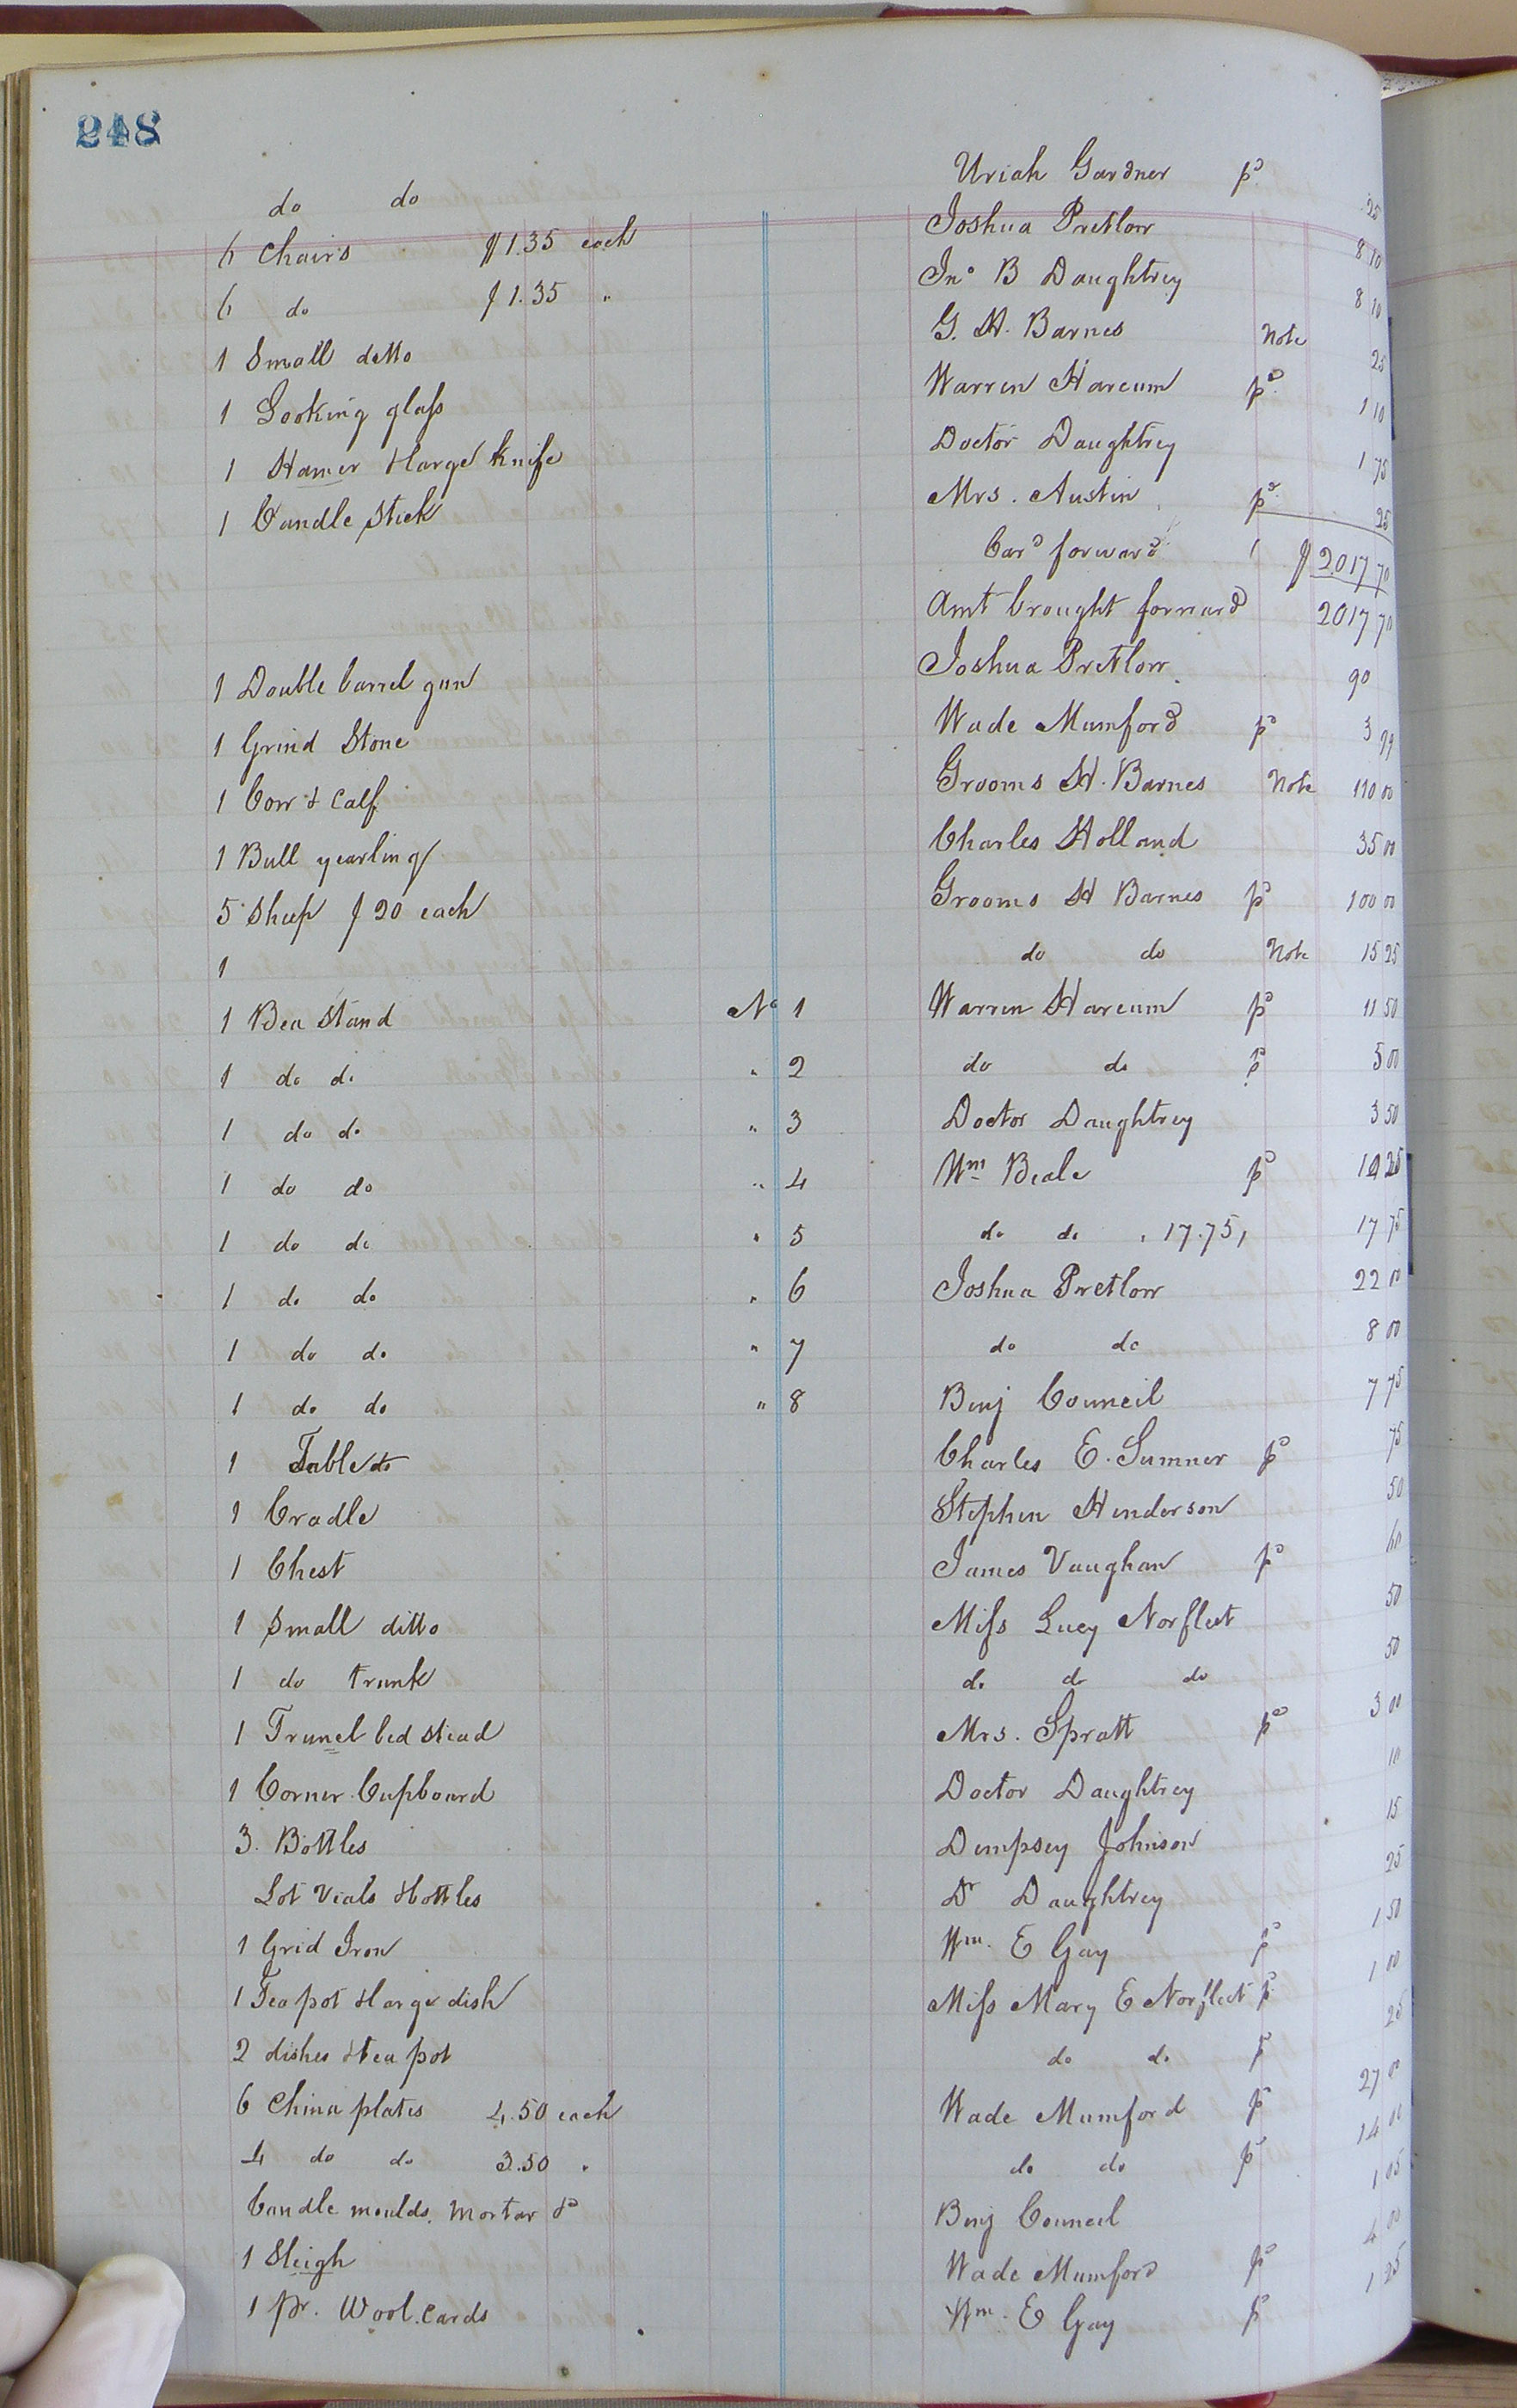 248
do do Uriah Gardner pd 25
6 Chairs $1.35 each Joshua Pretlow 8 10
6 do $1.35 " Jno B Daughtrey 8 10
1 Small ditto G. H. Barnes Note 25
1 Looking glass Warren Harcum pd 1 10
1 Hamer & large knife Doctor Daughtrey 1 75
1 Candle Stick Mrs. Austin pd 25
Card forward $2017 70
Amt brought forward 2017 70
1 Double barrel gun Joshua Pretlow 90
1 Grind Stone Wade Mumford pd 3 99
1 Cow & Calf Grooms H. Barnes Note 110 00
1 Bull yearling Charles Holland 35 00
5 Sheep $20 each Grooms H Barnes pd 100 00
1 do do Note 15 25
1 Bea Stand No 1 Warren Harcum pd 11 50
1 do do " 2 do do pd 5 00
1 do do " 3 Doctor Daughtrey 3 50
1 do do " 4 Wm Beale pd 25
1 do do " 5 do do 17.75, 17 75
1 do do " 6 Joshua Pretlow 22 00
1 do do " 7 do do 8 00
1 do do " 8 Benj Council 7 75
1 Table do Charles E. Sumner pd 75
1 Cradle Stephen Henderson 50
1 Chest James Vaughan pd 60
1 Small ditto Miss Lucy Norfleet 50
1 do trunk do do do 50
1 Trunel bed stead Mrs. Spratt pd 3 00
1 Corner Cupboard Doctor Daughtrey 10
3 Bottles Dempsey Johnson 15
Lot Vials & bottles Dr Daughtrey 25
1 Grid Iron Wm. E Gay pd 1 50
1 Tea pot & large dish Miss Mary E Norfleet pd 1 00
2 dishes & tea pot do do pd 25
6 China plates 4.50 each Wade Mumford pd 27 00
4 do do 3.50 " do do pd 14 00
Candle moulds, Mortar &c Benj Council 1 05
1 Sleigh Wade Mumford pd 4 00
1 pr. Wool Cards Wm. E Gay pd 1 25